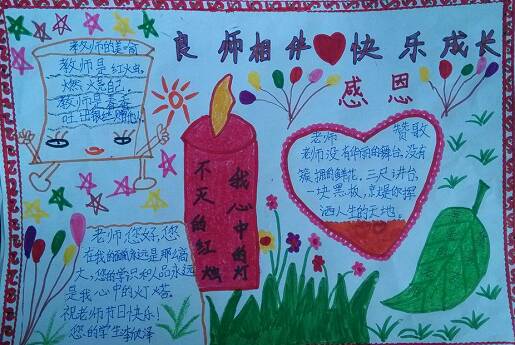 良师相伴 快乐成长
感恩
教师的美喻
教师是红火虫,
燃烧自己.
教师是春蚕
吐出银丝赠他人.
不灭的红烛
我心中的灯
老师 赞歌
老师没有华丽的舞台,没有
簇拥的鲜花,三尺讲台,
一块黑板,就是你挥
洒人生的天地。
老师,您好,您
在我的心里永远是那么高
大,您的学识和人品永远
是我心中的灯塔。
祝老师节日快乐!
您的学生